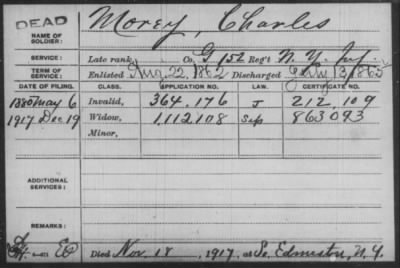 DEAD
NAME OF SOLDIER: Morey, Charles
SERVICE: Late rank, Co. G 152 Reg't N. Y. Inf.
TERM OF SERVICE: Enlisted Aug. 22, 1862 Discharged July 13, 1865
DATE OF FILING. CLASS. APPLICATION NO. LAW. CERTIFICATE NO.
1880 May 6 Invalid, 364.176 J 212.109
1917 Dec 19 Widow, 1,112,108 863093
Minor,
ADDITIONAL SERVICES:
REMARKS:
Died Nov. 18, 1917, at So. Edmeston, N. Y.